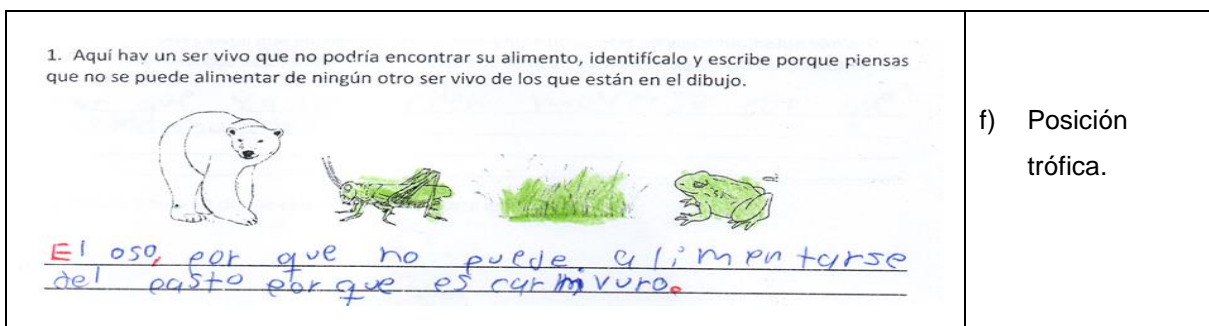 1. Aquí hay un ser vivo que no podría encontrar su alimento, identifícalo y escribe porque piensas
que no se puede alimentar de ningún otro ser vivo de los que están en el dibujo.
El oso, por que no puede alimentarse
del pasto por que es carmivuro.
f) Posición
trófica.